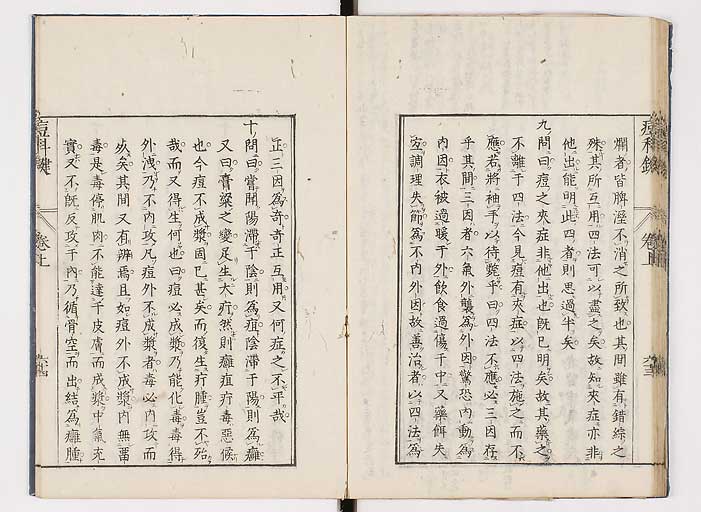 爛者皆脾溼不消之所致也其間雖有錯綜之
殊其所互用四法可以盡之矣故知夾症亦非
他出能明此四者則思過半矣
九問曰痘之夾症非他出也旣已明矣故其藥之
不離于四法今見痘有夾症以四法施之而不
應若將袖手以待斃乎曰四法不應必三因存
乎其間三因者六氣外襲爲外因驚恐內動爲
內因衣被過暖于外飮食過傷于中又藥餌失
宜調理失節爲不內外因故善治者以四法爲
正三因爲奇奇正互用又何症之不平哉
十問曰嘗聞陽滯于陰則爲痘陰滯于陽則爲癰
又曰膏粱之變足生大疔然則癰疽疔毒惡候
也今痘不成漿固已甚矣而復生疔腫豈不死
哉而又得生何也曰痘必成漿乃能化毒毒得
外洩乃不內攻凡痘外不成漿者毒必內攻而
死矣其間又有辨焉且如痘外不成漿內無蓄
毒是毒停肌肉不能達于皮膚而成漿中氣充
實又不旣反攻于內乃循骨空而出結爲癰腫
痘科鍵
卷上